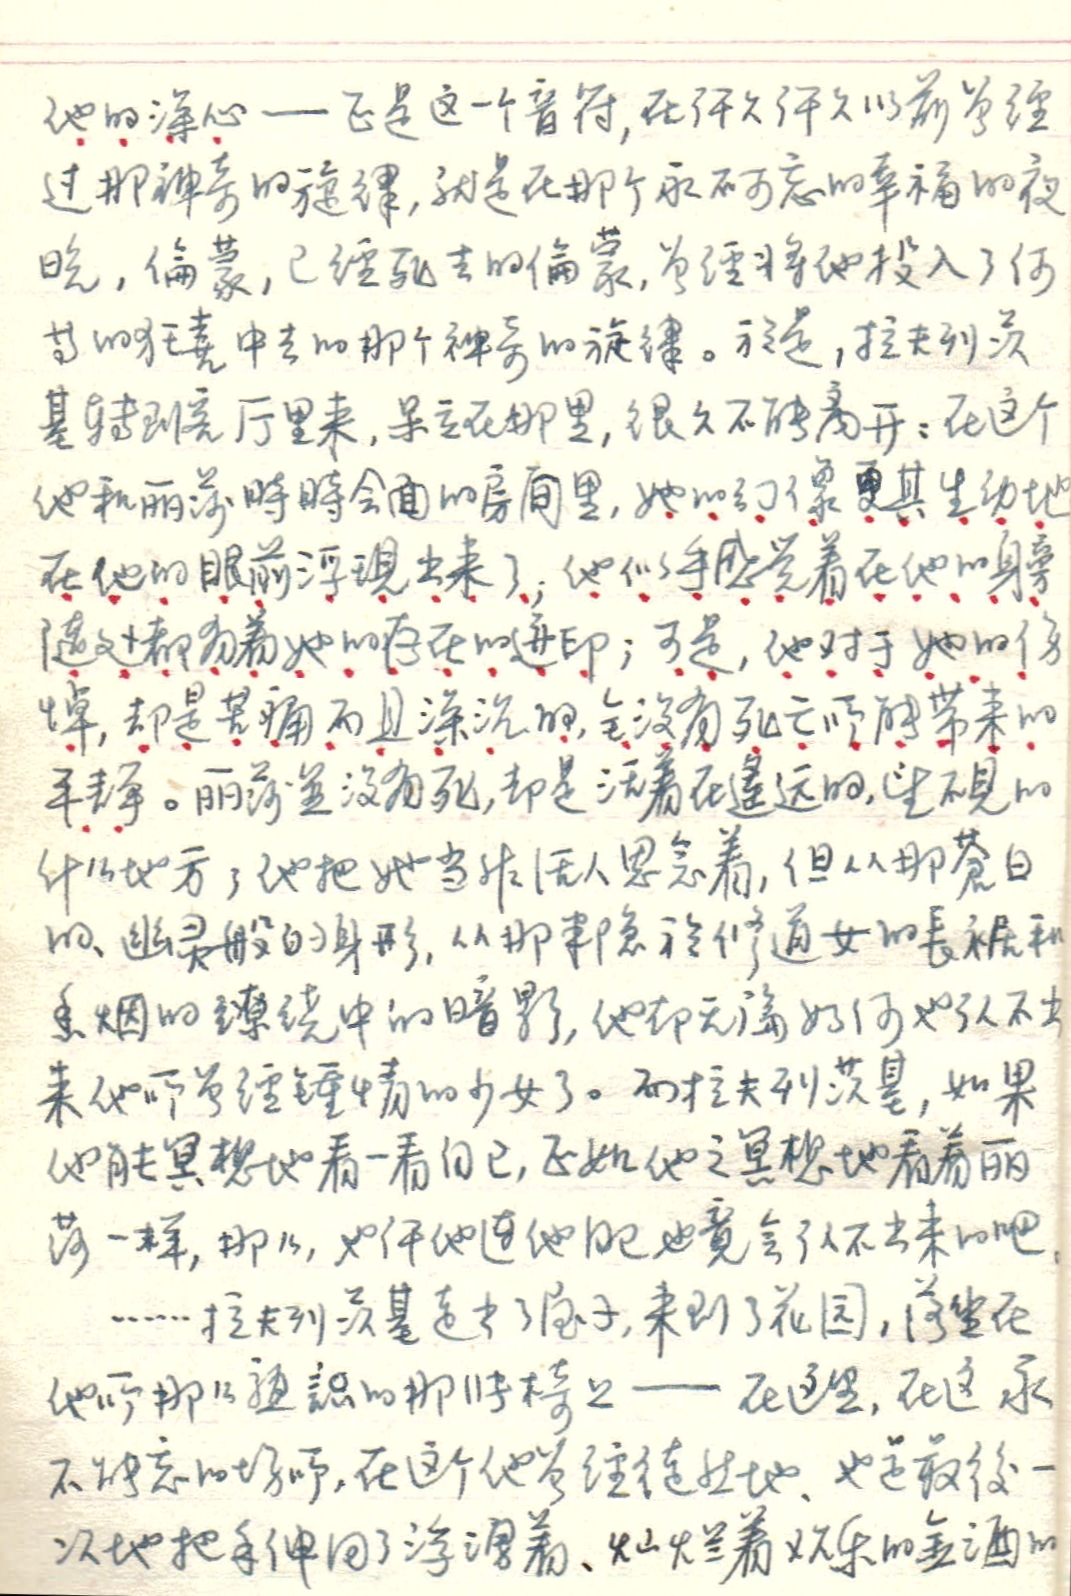 他的深心——正是这一个音符，在许久许久以前曾经
过那神奇的旋律，就是在那个永不可忘的幸福的夜
晚，倫蒙，已经死去的倫蒙，曾经将他投入了何
等的狂喜中去的那个神奇的旋律。于是，拉夫列茨
基转到客厅里来，呆立在那里，很久不能离开：在这个
他和丽莎時時会面的房间里，她的幻像更其生动地
在他的眼前浮現出来了；他似乎感觉着在他的身旁
随处都有着她的存在的迹印；可是，他对于她的伤
悼，却是苦痛而且深沉的，全没有死亡所能带来的
平静。丽莎並没有死，却是活着在遙远的，望不見的
什么地方；他把她当作活人思念着，但从那蒼白
的、幽灵般的身形，从那隐於修道女的長裾和
香烟的繚绕中的暗影，他却无論如何也认不出
来他所曾经鍾情的少女了。而拉夫列茨基，如果
他能冥想地看一看自己，正如他之冥想地看着丽
莎一样，那么，也许他连他自己也竟会认不出来的吧。
……拉夫列茨基走出了屋子，来到了花园，落坐在
他所那么熟識的那张椅上——在这里，在这永
不能忘的场所，在这个他曾经徒然地、也是最後一
次地把手伸向了浮漾着、灿烂着欢乐的金酒的